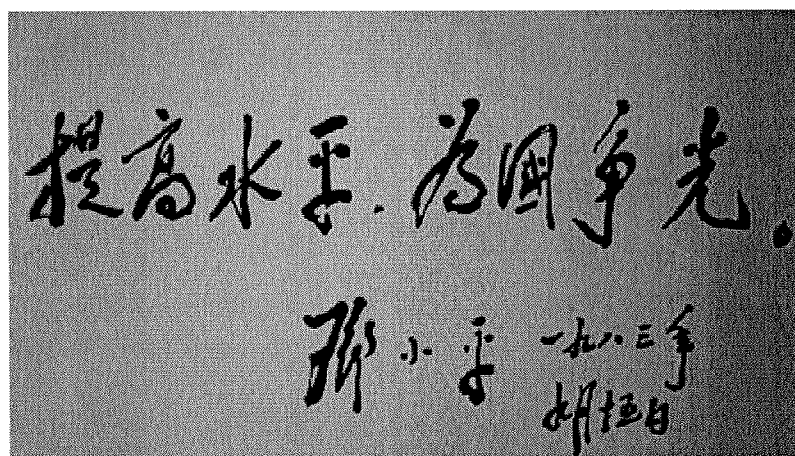 提高水平.为國争光。
邓小平 一九八三年
月十五日